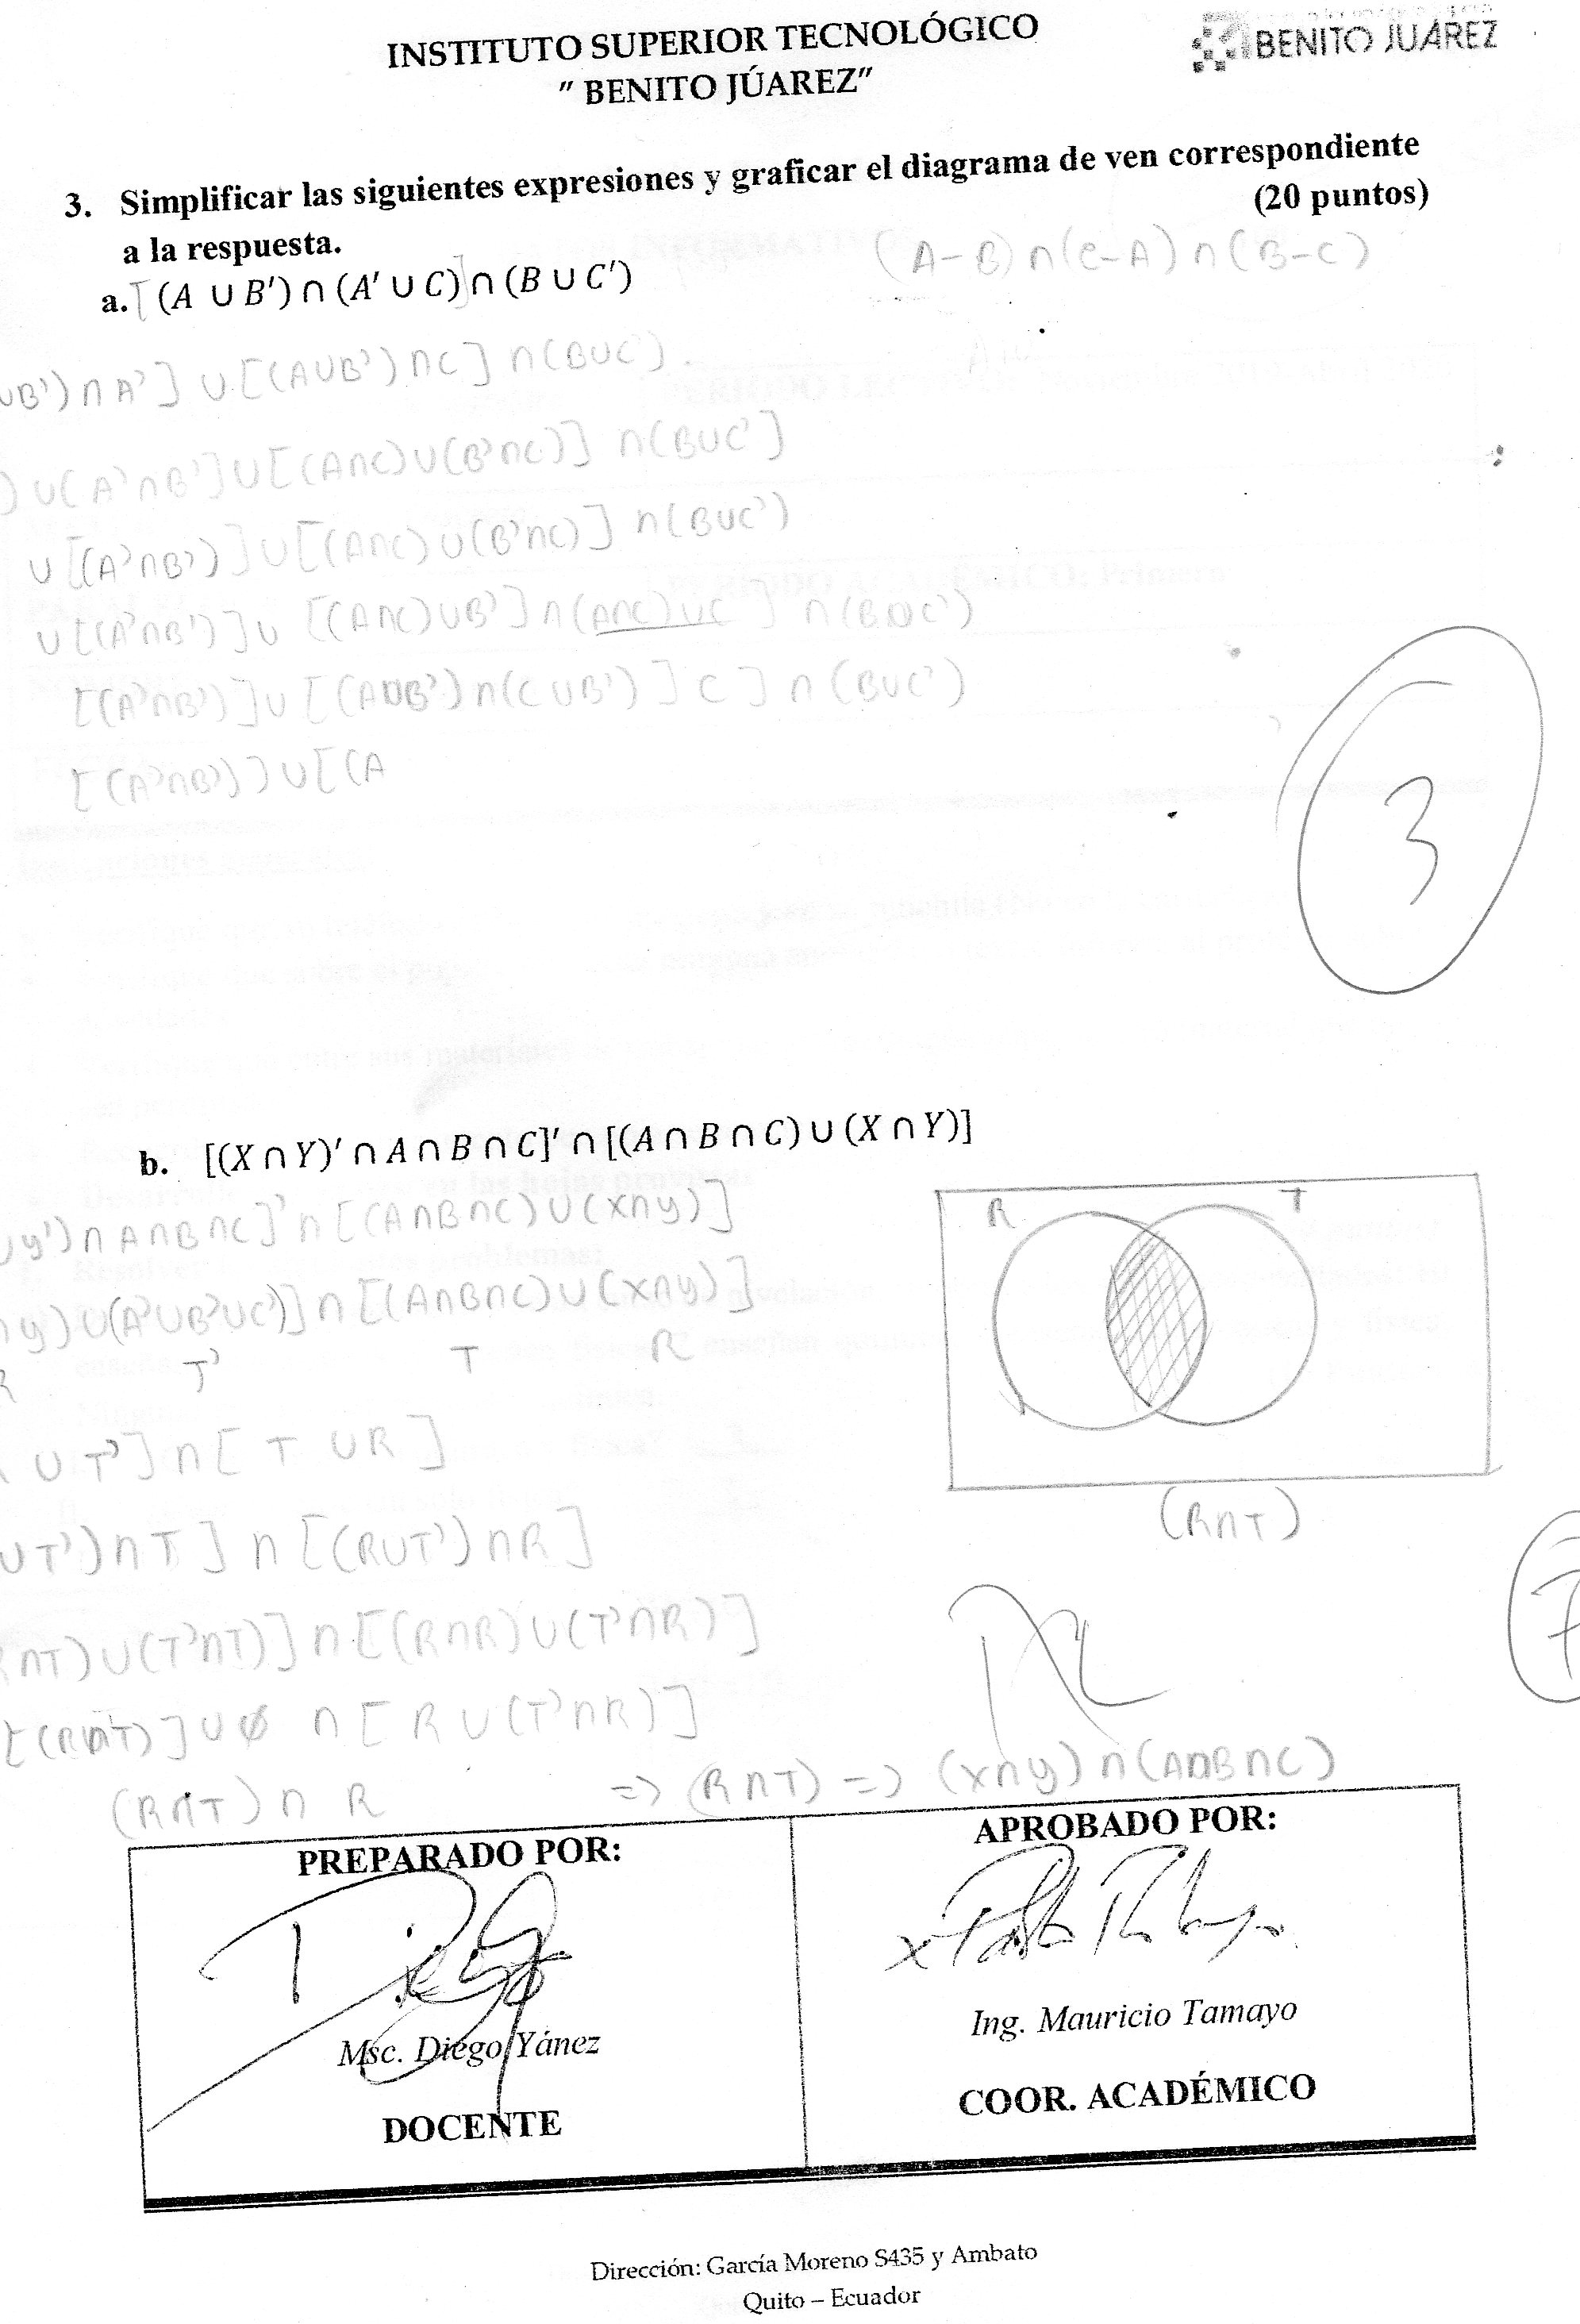 INSTITUTO SUPERIOR TECNOLÓGICO
" BENITO JÚAREZ"
BENITO JUÁREZ
3. Simplificar las siguientes expresiones y graficar el diagrama de ven correspondiente
a la respuesta. (20 puntos)
(A-B)∩(C-A)∩(B-C)
a. [(A ∪ B′) ∩ (A′ ∪ C)] ∩ (B ∪ C′)
∪B')∩A'] ∪ [(A∪B')∩C] ∩(B∪C').
) ∪(A'∩B']∪[(A∩C)∪(B'∩C)] ∩(B∪C']
∪ [(A'∩B')]∪[(A∩C)∪(B'∩C)] ∩(B∪C')
∪[(A'∩B')]∪ [(A∩C)∪B']∩(A∩C)∪C] ∩(B∪C')
[(A'∩B')]∪[(A∪B')∩(C∪B')]C] ∩(B∪C')
[(A'∩B')]∪[(A
3
b. [(X ∩ Y)′ ∩ A ∩ B ∩ C]′ ∩ [(A ∩ B ∩ C) ∪ (X ∩ Y)]
∪y')∩A∩B∩C]'∩[(A∩B∩C)∪(x∩y)]
∩y)∪(A'∪B'∪C')]∩[(A∩B∩C)∪(x∩y)]
R T' T R
R T
∪T']∩[T ∪R]
(R∩T)
∪T')∩T]∩[(R∪T')∩R]
7
∩T)∪(T'∩T)]∩[(R∩R)∪(T'∩R)]
[(R∩T)]∪∅ ∩[R∪(T'∩R)]
(R∩T)∩ R => (R∩T) => (x∩y)∩(A∩B∩C)
PREPARADO POR:
APROBADO POR:
Msc. Diego Yánez
Ing. Mauricio Tamayo
DOCENTE
COOR. ACADÉMICO
Dirección: García Moreno S435 y Ambato
Quito – Ecuador